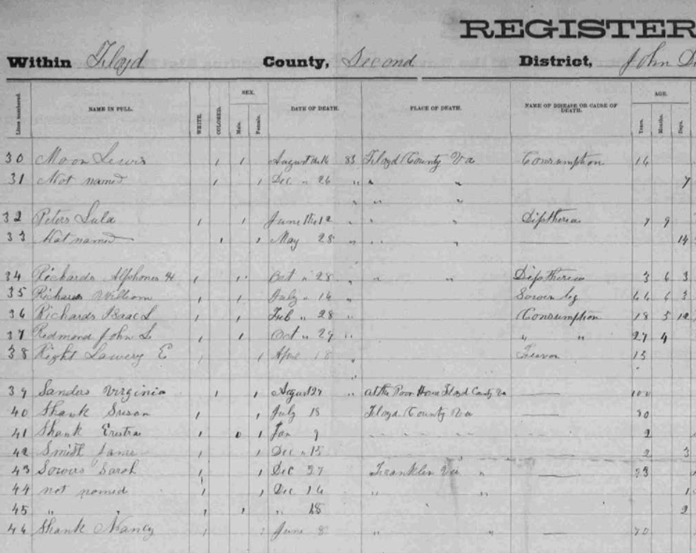 REGISTER
Within Floyd County, Second District, John
Lines numbered. NAME IN FULL. WHITE. COLORED. SEX. Male. Female. DATE OF DEATH. PLACE OF DEATH. NAME OF DISEASE OR CAUSE OF DEATH. AGE. Years. Months. Days.
30 Moon Lewis August 16 83 Floyd County Va Consumption 14
31 Not named Dec " 26 " " " 7
32 Peters Lula June " " " Diptheria 7 9
33 Not named May 28 " " " 14
34 Richards Alphones H Oct " 28 " " " Diptheria 3 6 3
35 Richards William July " 14 " 64 6
36 Richards Isaac L Feb " 28 " Consumption 18 5 12
37 Redmond John L Oct " 29 " " " 27 4
38 Right Lawery E 18 Fever 15
39 Sanders Virginia August 27 " at the Poor House Floyd County Va 100
40 Shank Susan July 18 Floyd County Va
41 Shank Jan 9 2
42 Smith Dec " 15 2 3
43 Sowers Sarah Dec 27 Franklin Va " 23
44 not named Dec 14 " " 1
45 " " " 18 2
46 Shank Nancy June 8 " "